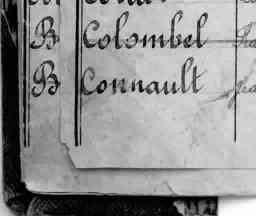 B Colombel
B Connault